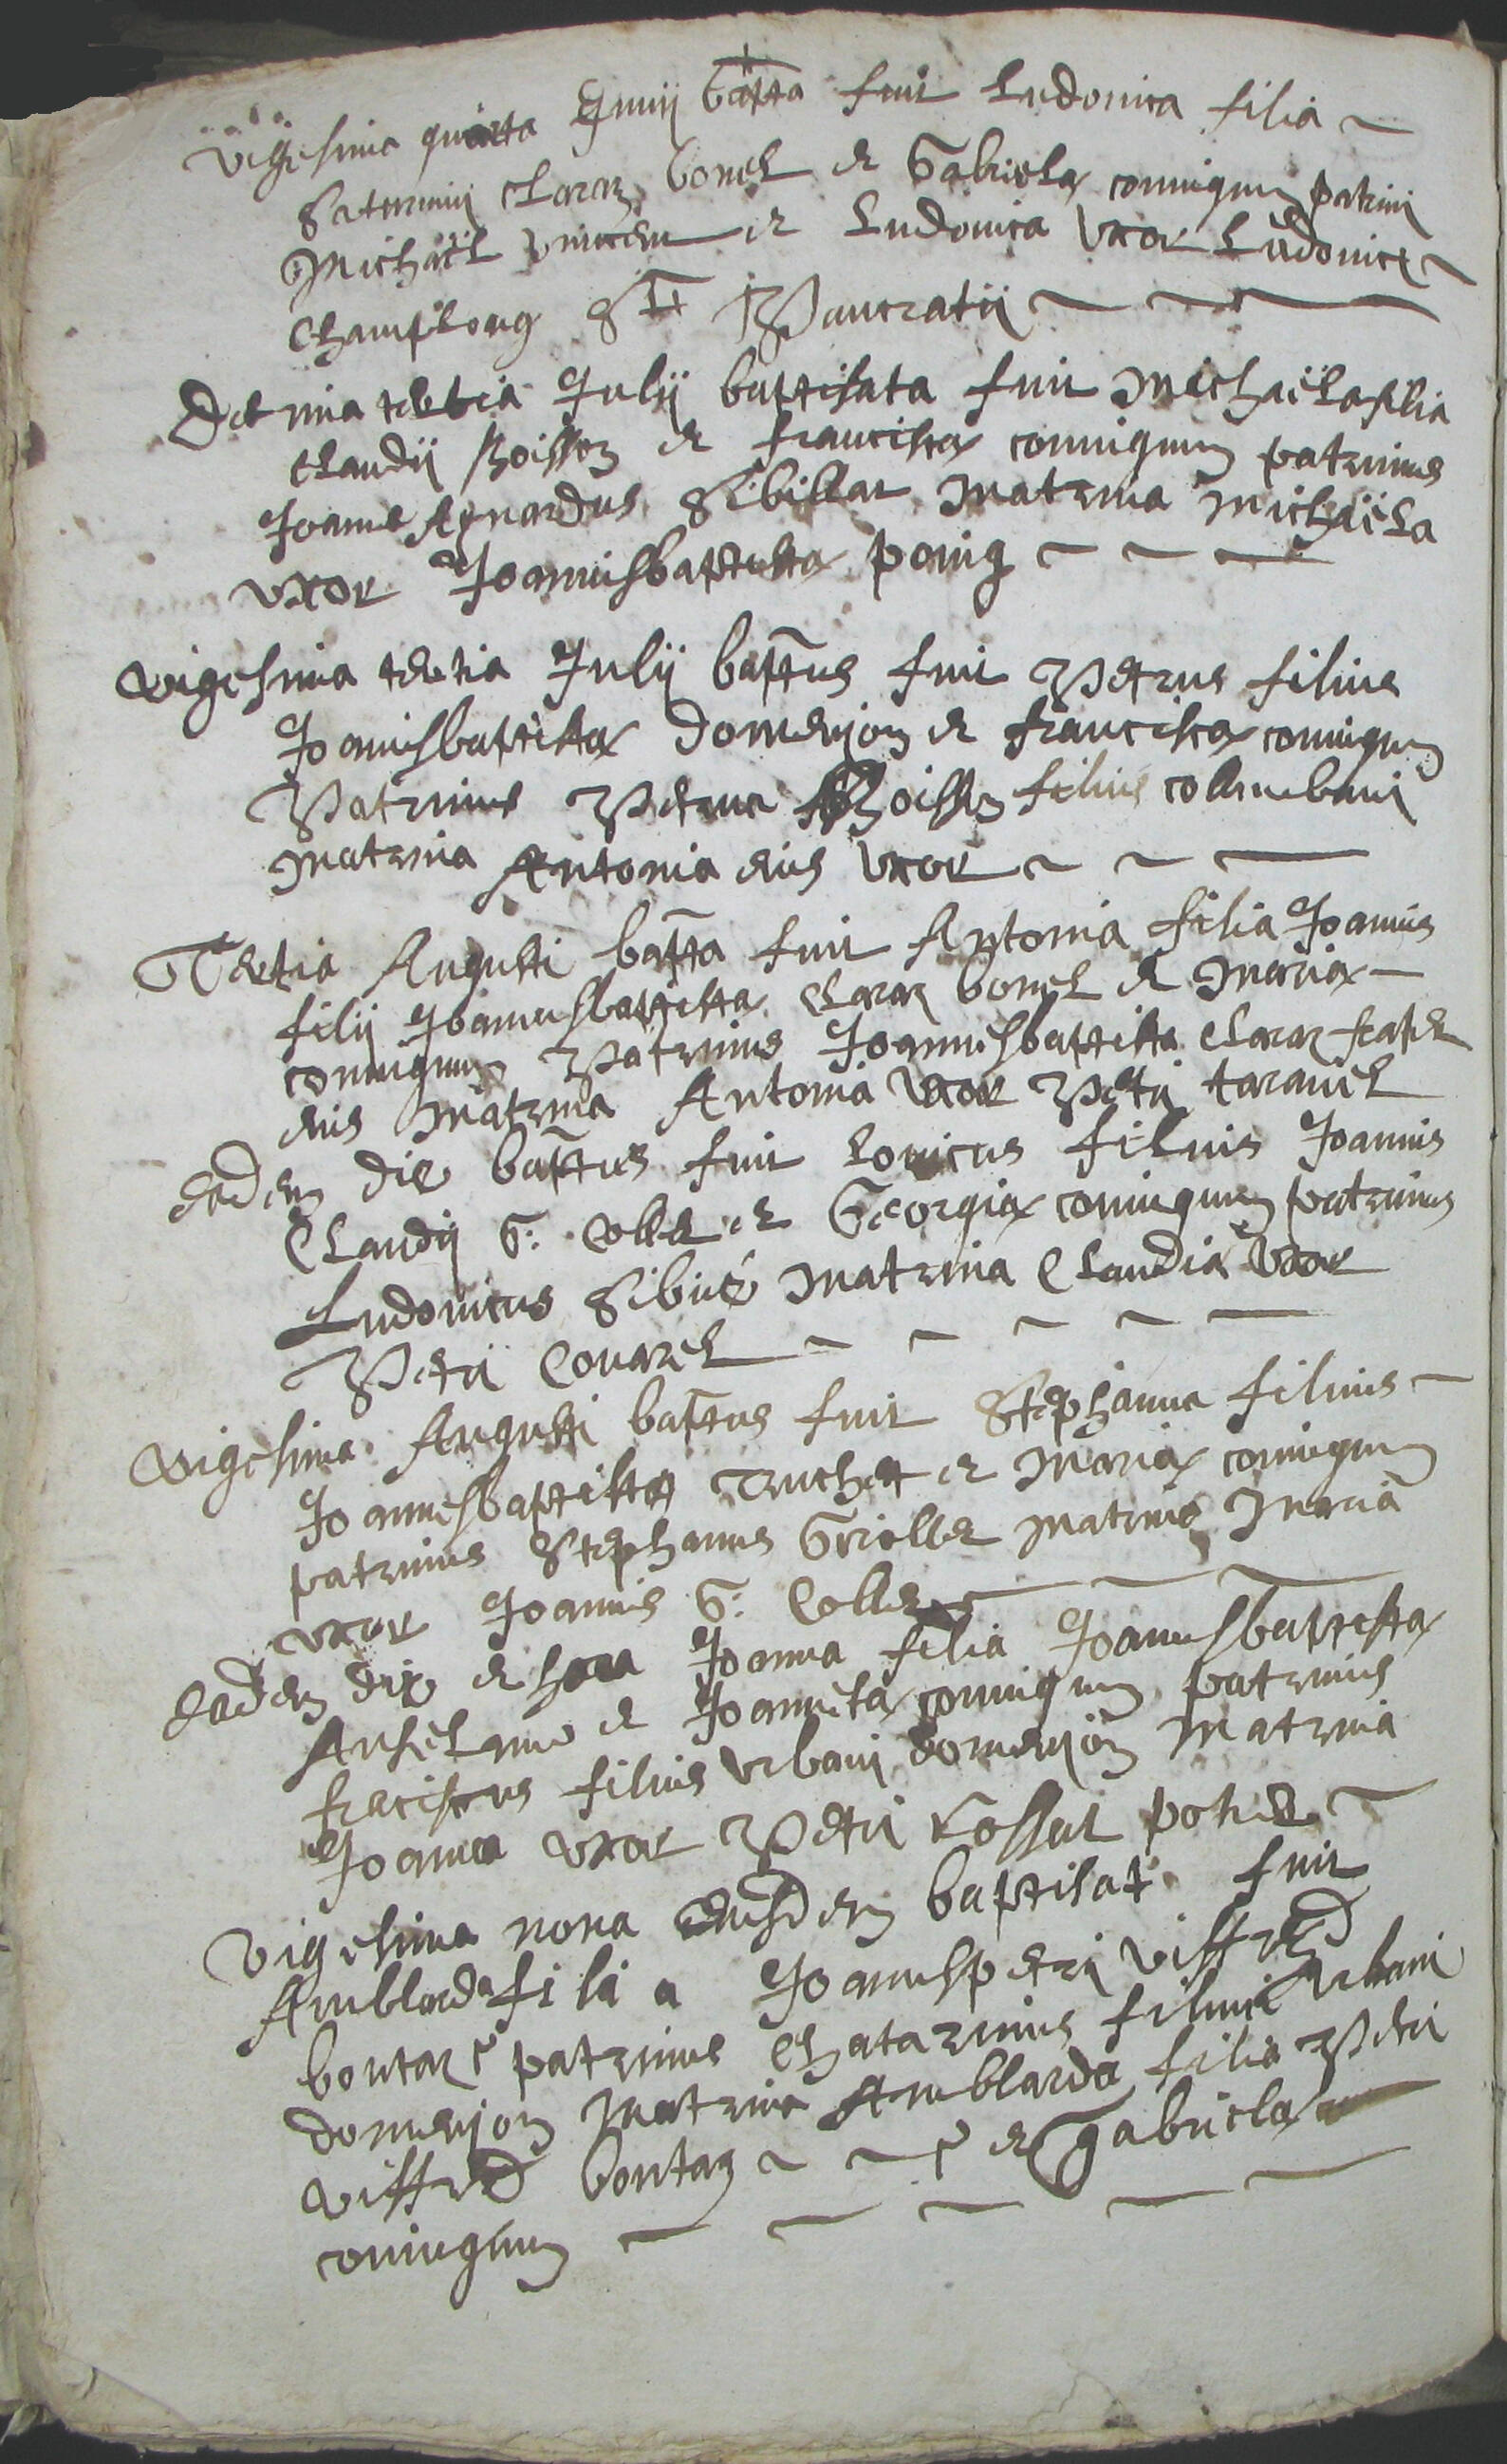 Vigesima quarta Junij bapta fuit Ludovica filia
Saturnini Claraz bonel et Gabrielæ coniugum patrini
Michaël vincen et Ludovica uxor Ludovici
Champlong Sti Pancratii
Decima tertia Julij baptisata fuit Michaëla filia
Claudij Boisson et francisæ coniugum patrinus
Joannes Aymardus Sibillat matrina Michaëla
uxor Joannisbaptistæ poing
Vigesima tertia Julij baptus fuit Petrus filius
Joanisbaptistæ domenjon et franciscæ coniugum
Patrinus Petrus Boisson filius columbani
matrina Antonia eius uxor
Tertia Augusti bapta fuit Antonia filia Joannis
filij Joannisbaptistæ Claraz bonel et Mariæ
coniugum Patrinus Joannesbaptista Claraz frater
eius matrina Antonia uxor Petri taravel
Eadem die baptus fuit Lovicus filius Joannis
Claudij G: Collet et Georgiæ coniugum patrinus
Ludovicus Sibué matrina Claudia uxor
Petri Covarel
Vigesima Augusti baptus fuit Stephanus filius
Joannisbaptistæ Truchet et Mariæ coniugum
patrinus Stephanus Griollet matrina Maria
uxor Joannis G: Collet
Eadem die et hora Joanna filia Joannisbaptistæ
Anselme et Joannetæ coniugum patrinus
fraciscus filius Urbani domenjon matrina
Joanna uxor Petri Rossat potier
Vigesima nona eiusdem baptisat fuit
Amblarda filia Joannispetri viffred
bontaz patrinus Chatarinus filius Urbani
domenjon matrina Amblarda filia Petri
viffred bontaz et gabrielæ
coniugum